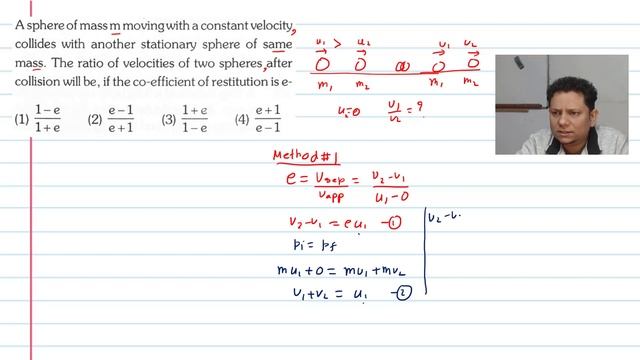 A sphere of mass m moving with a constant velocity,
collides with another stationary sphere of same
mass. The ratio of velocities of two spheres, after
collision will be, if the co-efficient of restitution is e-
(1) 1-e/1+e (2) e-1/e+1 (3) 1+e/1-e (4) e+1/e-1
u₁ > u₂ v₁ v₂
m₁ m₂ m₁ m₂
u₂=0 v₁/v₂ = ?
Method #1
e = Vsep/Vapp = v₂-v₁/u₁-0
v₂-v₁ = eu₁ -①
pi = pf
mu₁+0 = mv₁+mv₂
v₁+v₂ = u₁ -②
v₂-v.